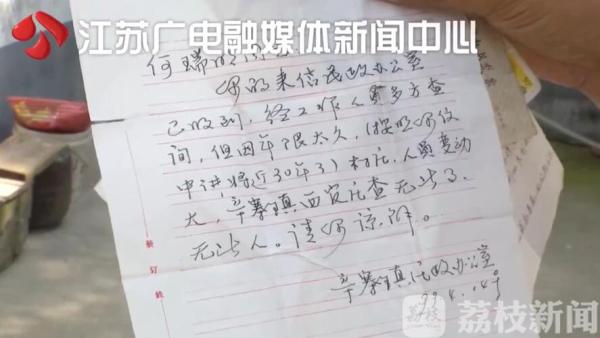 江苏广电融媒体新闻中心
何瑞
你的来信民政办公室
已收到，经工作人员多方查
问，但因年限太久，（按照你信
中讲，将近30年了）村庄，人员变动
大，辛寨镇西官庄查无此
无此人。请你谅解。
辛寨镇民政办公室
装
订
线
荔枝
荔枝新闻